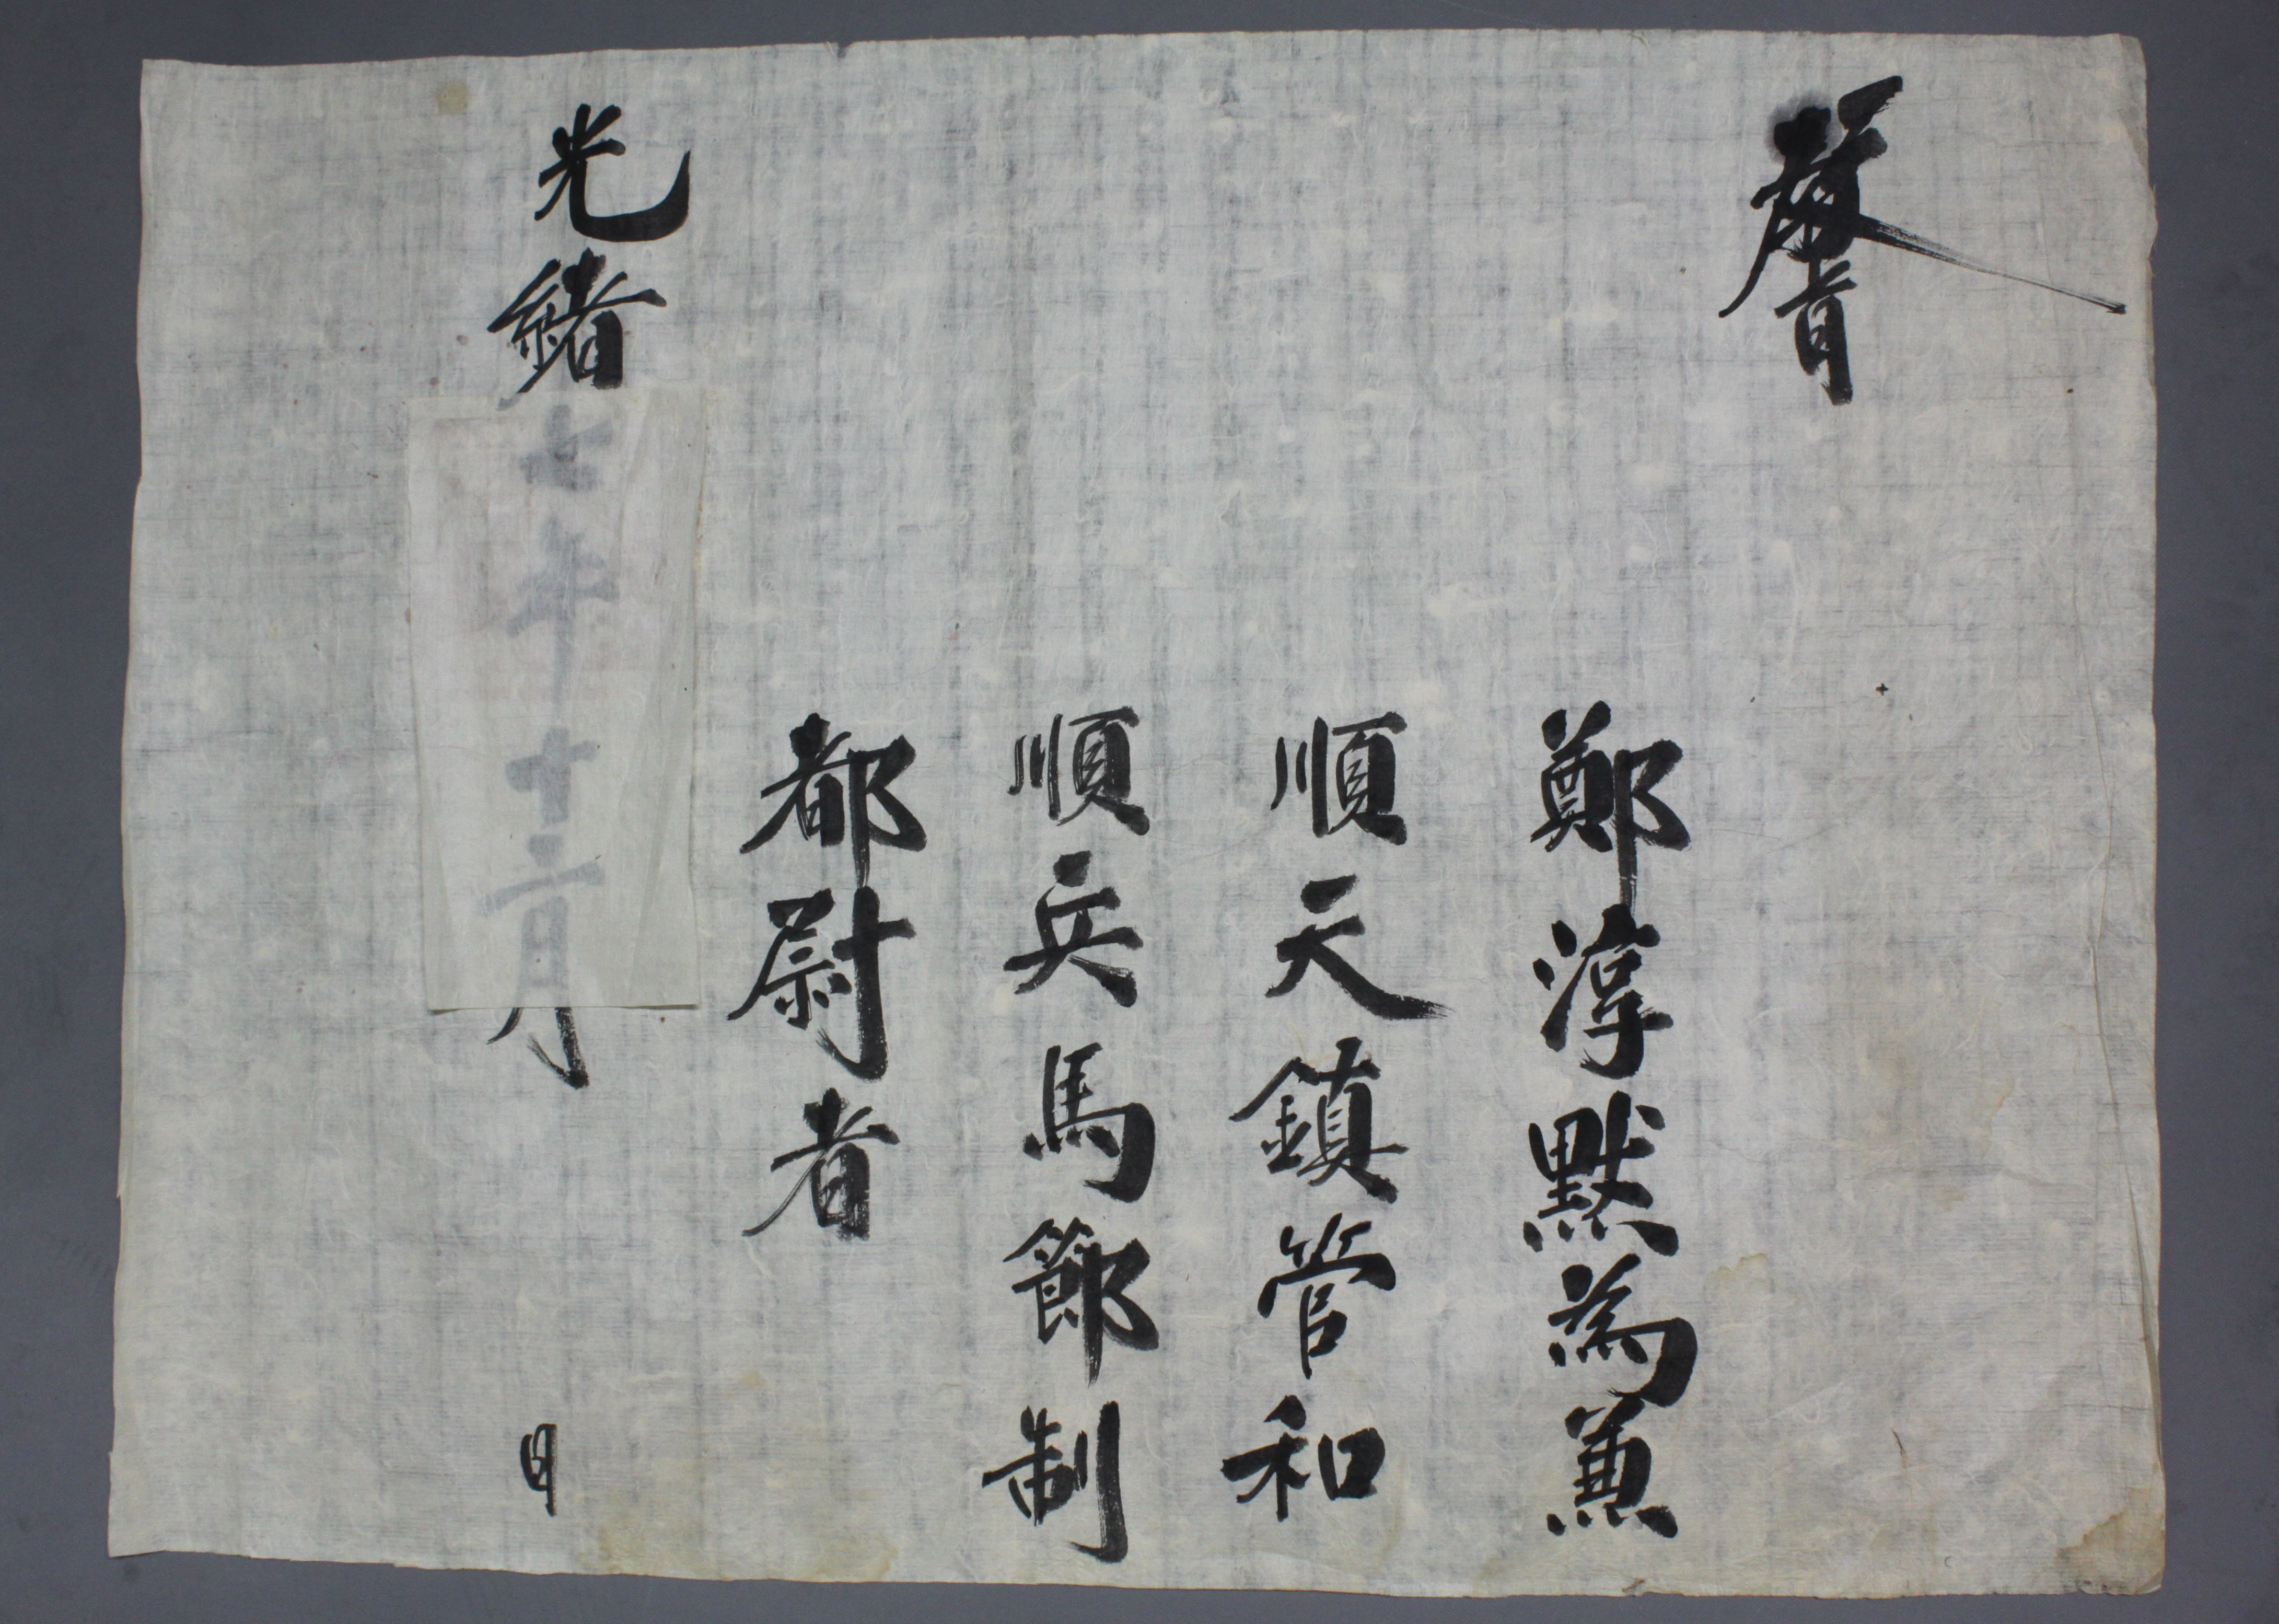 教旨
鄭淳默為兼
順天鎮管和
順兵馬節制
都尉者
光緒七年十二月 日